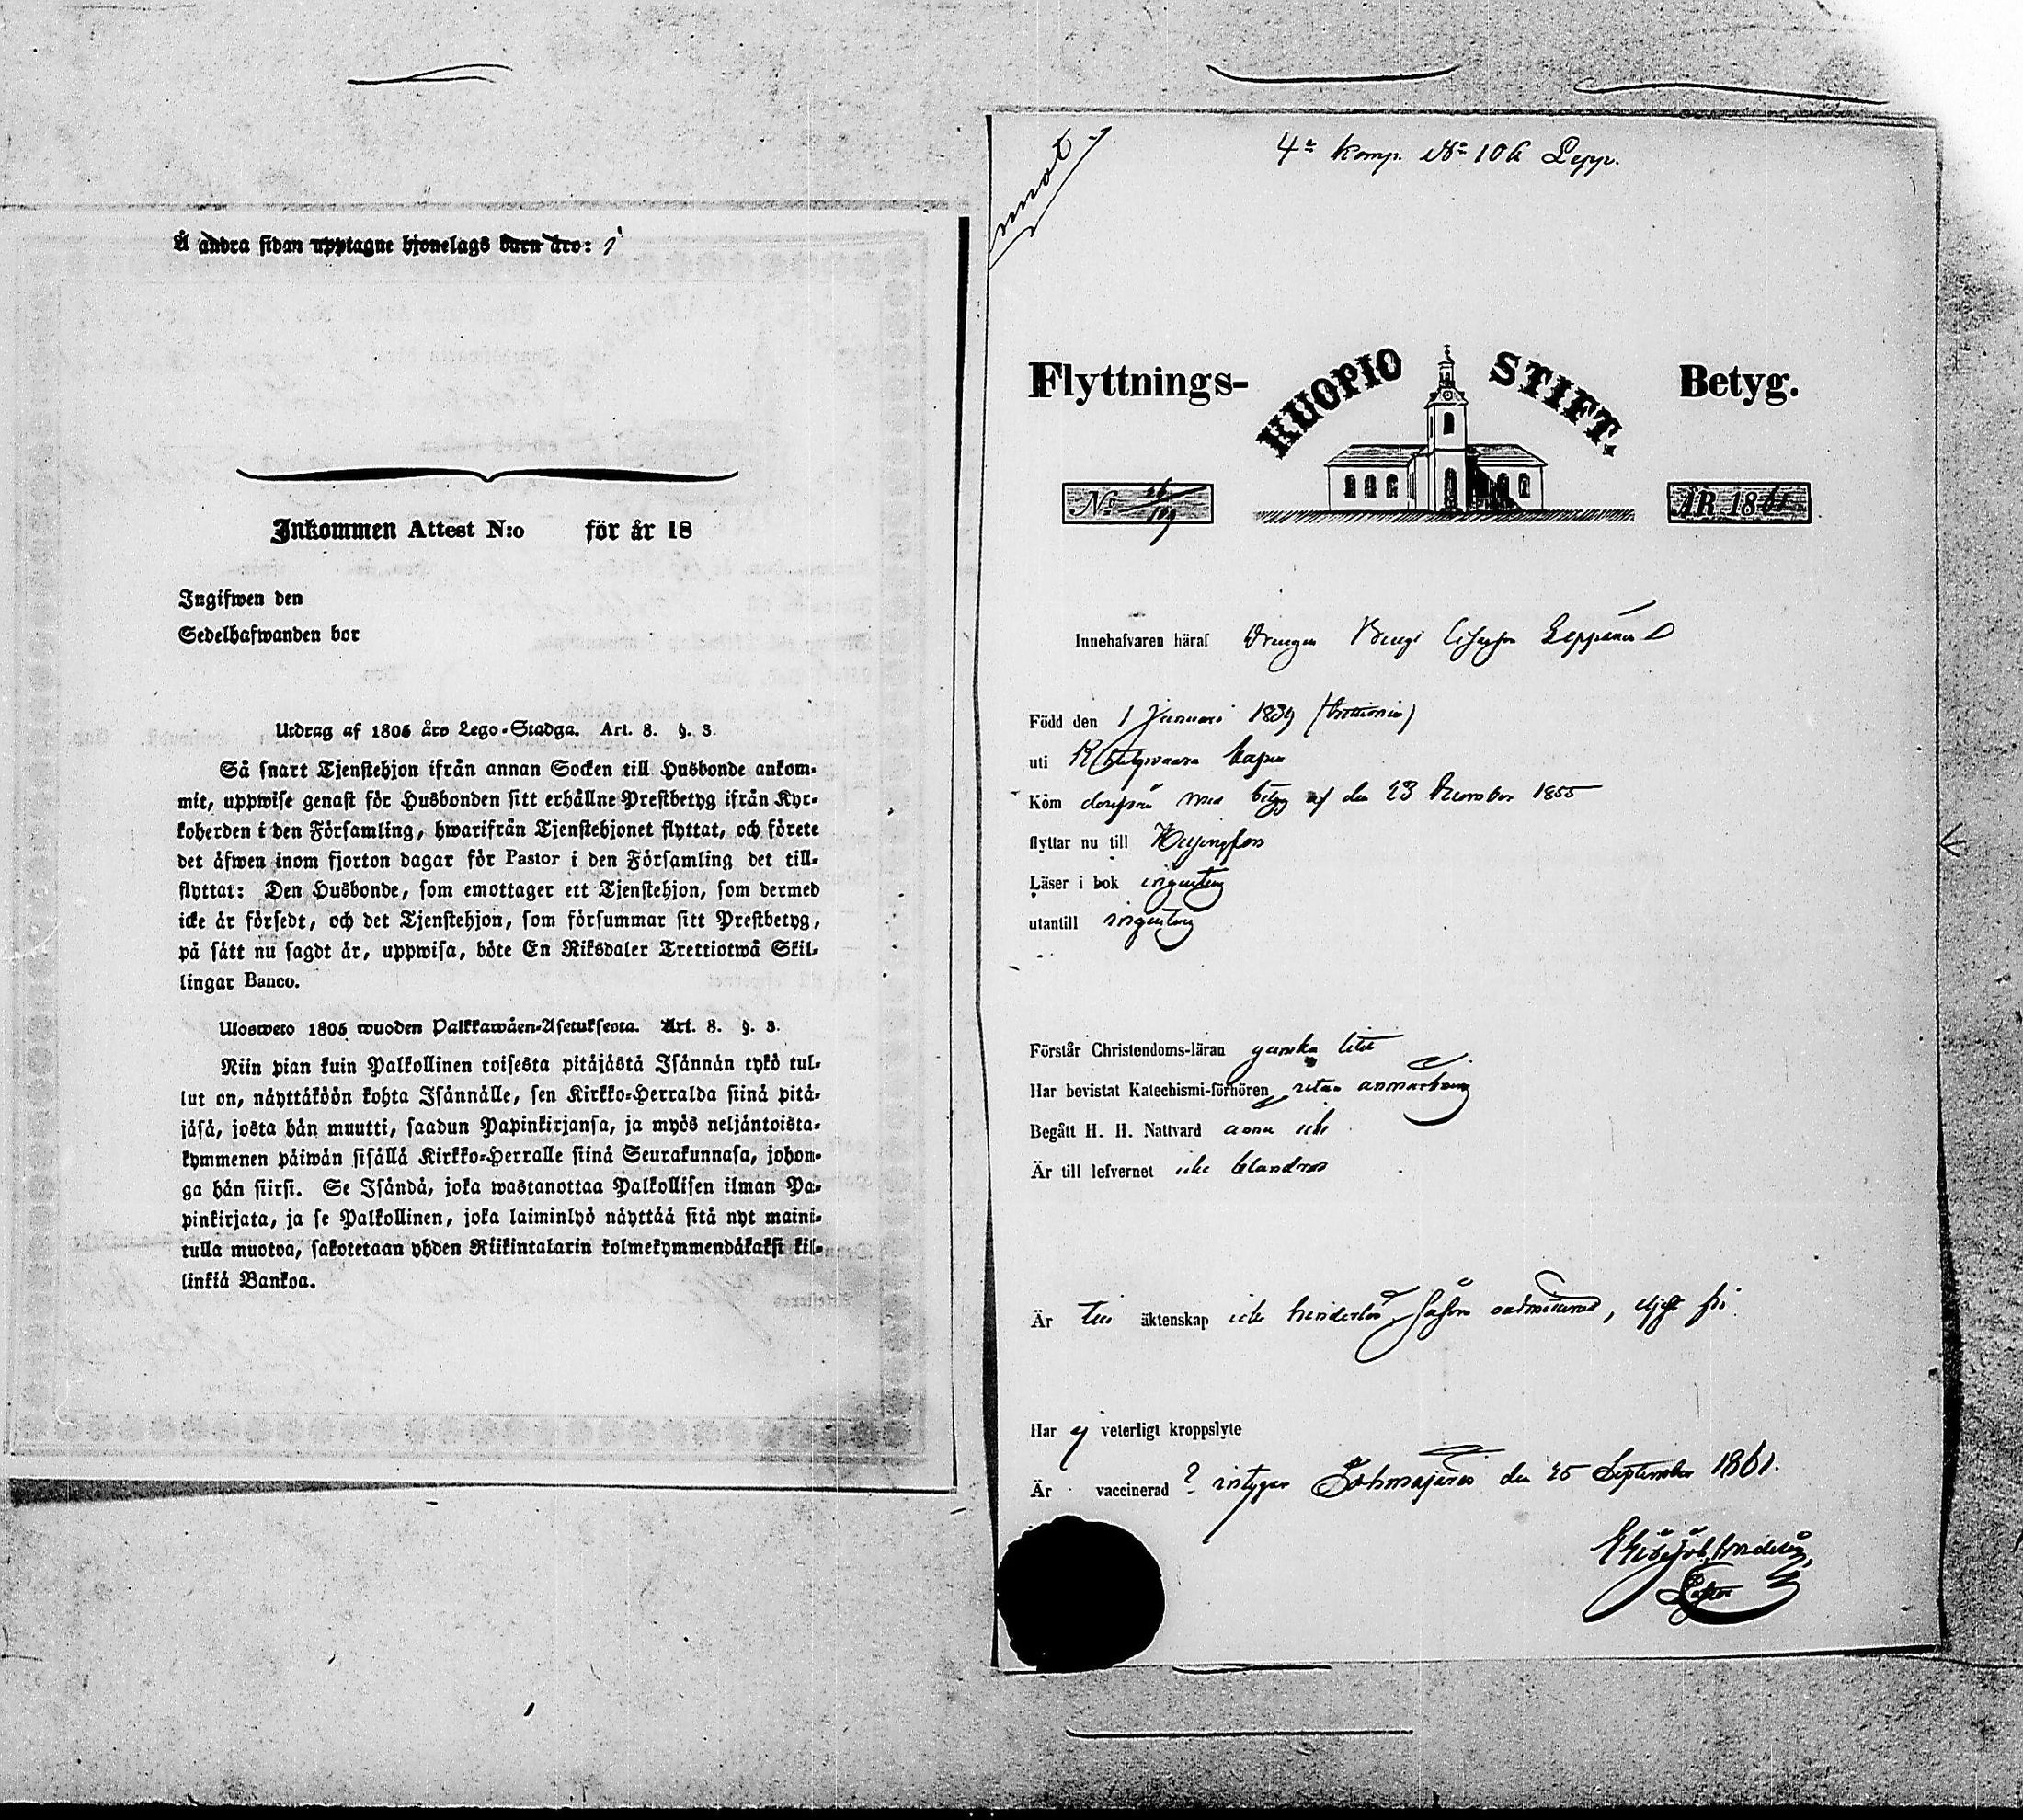 Å andra sidan upptagne hjonelags barn äro:
Inkommen Attest N:o för år 18
Ingifwen den
Sedelhafwanden bor
Utdrag af 1805 års Lego-Stadga. Art. 8. §. 3.
Så snart Tjenstehjon ifrån annan Socken till Husbonde ankom-
mit, uppwise genast för Husbonden sitt erhållne Prestbetyg ifrån Kyr-
koherden i den Församling, hwarifrån Tjenstehjonet flyttat, och förete
det äfwen inom fjorton dagar för Pastor i den Församling det till-
flyttat: Den Husbonde, som emottager ett Tjenstehjon, som dermed
icke är försedt, och det Tjenstehjon, som försummar sitt Prestbetyg,
på sätt nu sagdt är, uppwisa, böte En Riksdaler Trettiotwå Skil-
lingar Banco.
Ulosweto 1805 wuoden Palkkawäen-Asetuksesta. Art. 8. §. 3.
Niin pian kuin Palkollinen toisesta pitäjästä Isännän tykö tul-
lut on, näyttäköön kohta Isännälle, sen Kirkko-Herralda siinä pitä-
jäsä, josta hän muutti, saadun Papinkirjansa, ja myös neljäntoista-
kymmenen päiwän sisällä Kirkko-Herralle siinä Seurakunnasa, johon-
ga hän siirsi. Se Isändä, joka wastanottaa Palkollisen ilman Pa-
pinkirjata, ja se Palkollinen, joka laiminlyö näyttää sitä nyt maini-
tulla muotoa, sakotetaan yhden Riikintalarin kolmekymmendäkaksi kil-
linkiä Bankoa.
4de Komp. No 106 Lepp.
Flyttnings- KUOPIO STIFT. Betyg.
No 26/109 ÅR 1861
Innehafvaren häraf Drengen Bengt Leppänen
Född den 1 Januari 1839
uti
Kom derifrån med betyg af den 23 December 1855
flyttar nu till Helsingfors
Läser i bok ingenting
utantill ingenting
Förstår Christendoms-läran ganska litet
Har bevistat Katechismi-förhören utan anmärkning
Begått H. H. Nattvard ännu icke
Är till lefvernet icke klandrad
Är till äktenskap icke hinderlös, såsom oadmitterad, eljest fri.
Har ej veterligt kroppslyte
Är vaccinerad ? intygar Tohmajärvi den 25 September 1861.